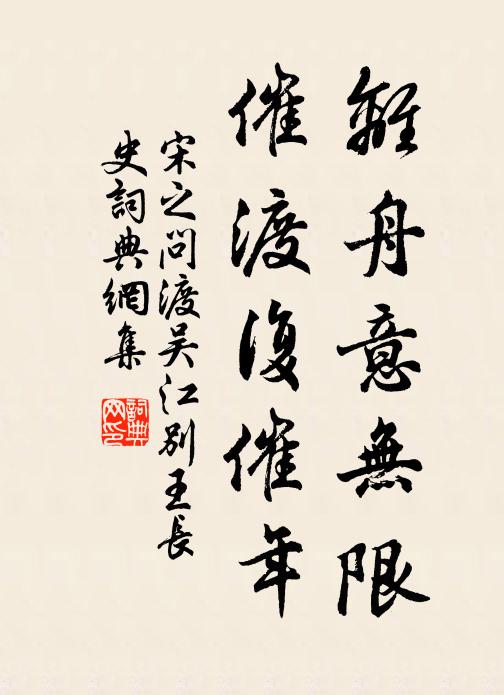 離舟意無限
催渡復催年
宋之問渡吴江別王長
史詞典網集
詞典
网印